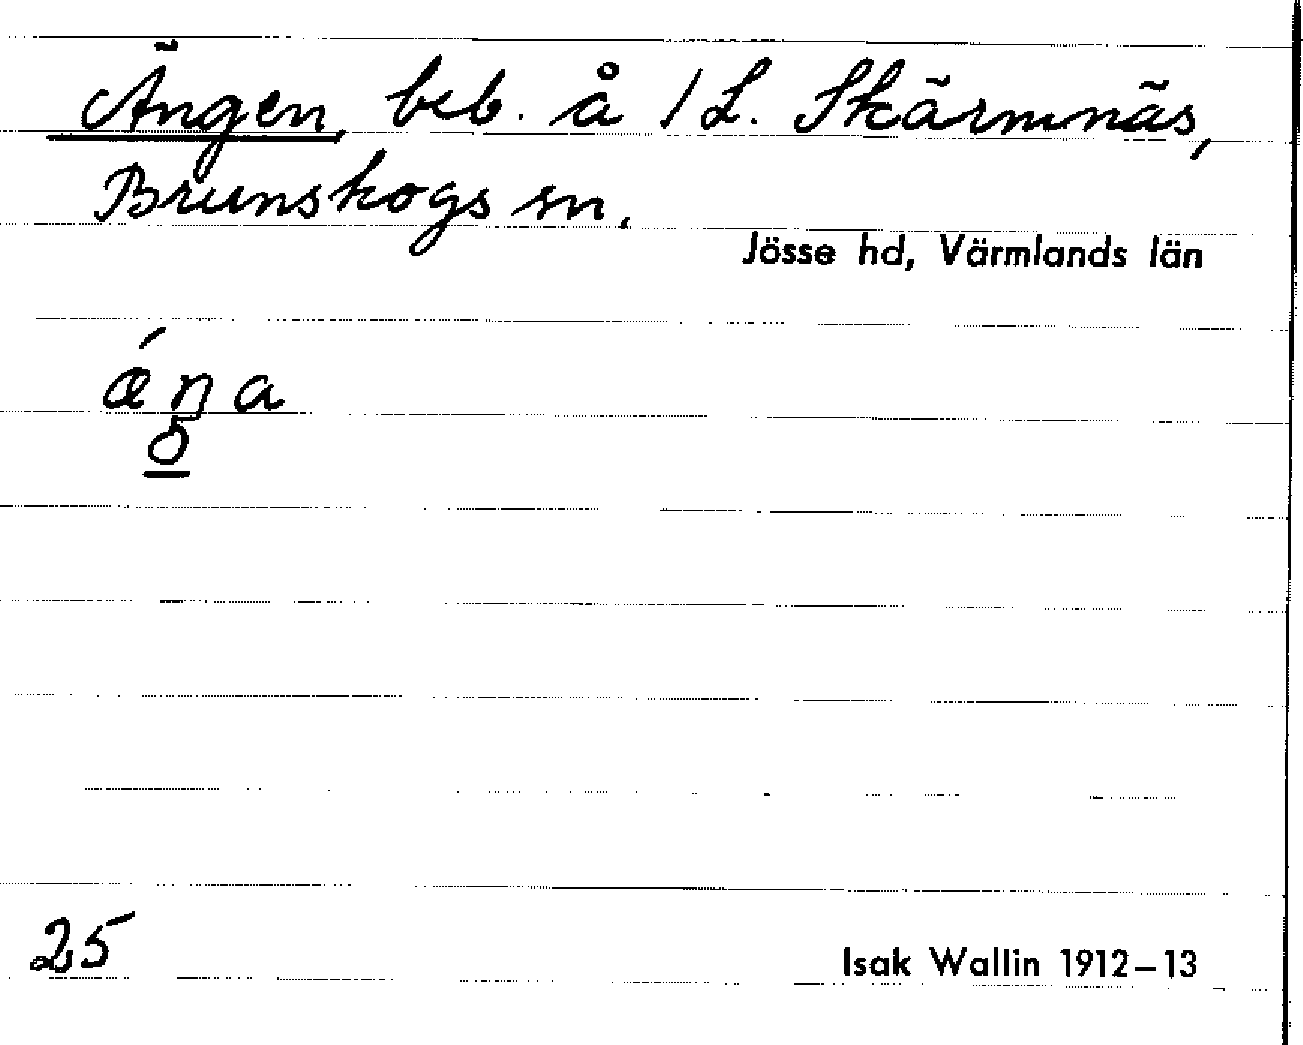 Ängen, beb. å 1 L. Skärmnäs,
Brunskogs sn.
Jösse hd, Värmlands län
ǽŋa
25
Isak Wallin 1912–13